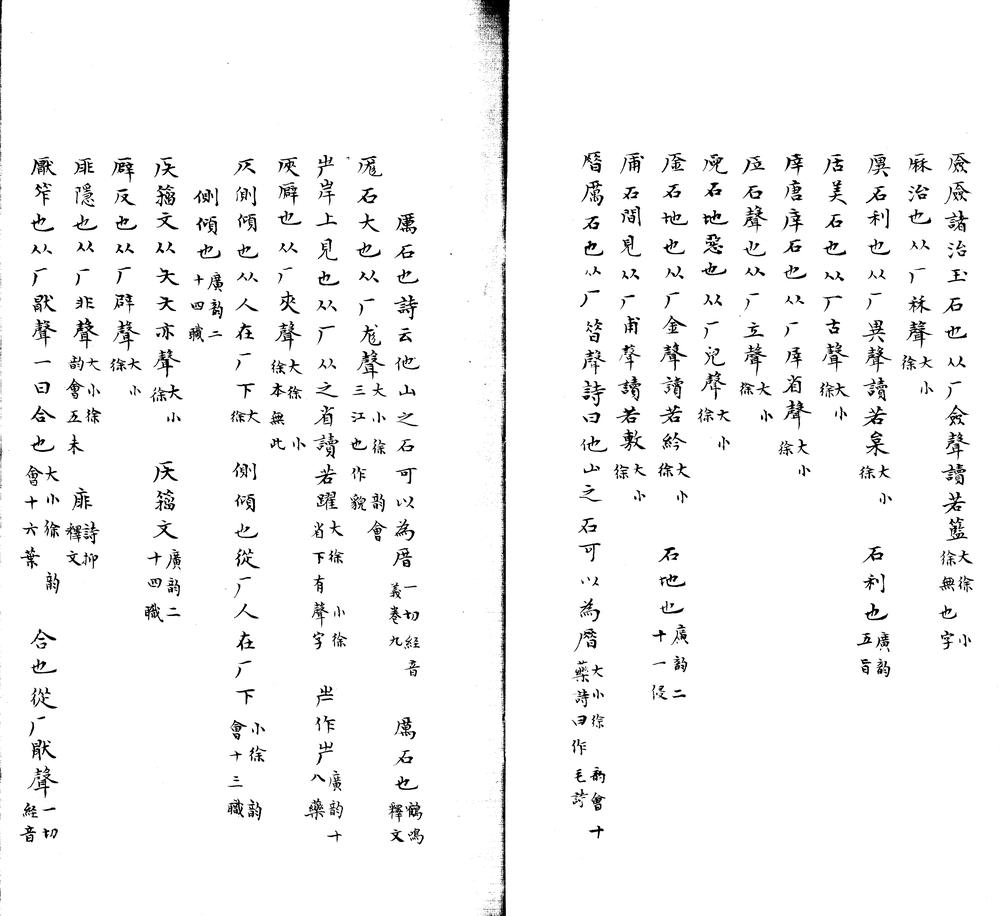 厱厱諸治玉石也从厂僉聲讀若籃大徐小徐無也字
厤治也从厂秝聲大小徐
㕖石利也从厂異聲讀若枲大小徐　石利也廣韵五旨
𠩏美石也从厂古聲大小徐
唐厗石也从厂屖省聲大小徐
㕇石聲也从厂立聲大小徐
石地惡也从厂兒聲大小徐
厒石地也从厂金聲讀若紟大小徐　石地也廣韵二十一侵
石間見从厂甫聲讀若敷大小徐
厝厲石也从厂昔聲詩曰他山之石可以為厝大小徐　韵會十藥詩曰作毛詩
厲石也詩云他山之石可以為厝一切經音義卷九　厲石也鶴鳴釋文
厖石大也从厂尨聲大小徐　韵會三江也作貌
屵岸上見也从厂从之省讀若躍大徐　小徐省下有聲字　屵作屵廣韵十八藥
㕠廦也从厂夾聲大徐　小徐本無此
仄側傾也从人在厂下大徐　側傾也從厂人在厂下小徐　韵會十三職
側傾也廣韵二十四職
𠨮籀文从夨夨亦聲大小徐　𠨮籀文廣韵二十四職
廦反也从厂辟聲大小徐
厞隱也从厂非聲大小徐韵會五未　扉詩抑釋文
厭笮也从厂猒聲一曰合也大小徐　韵會十六葉　合也從厂猒聲一切經音